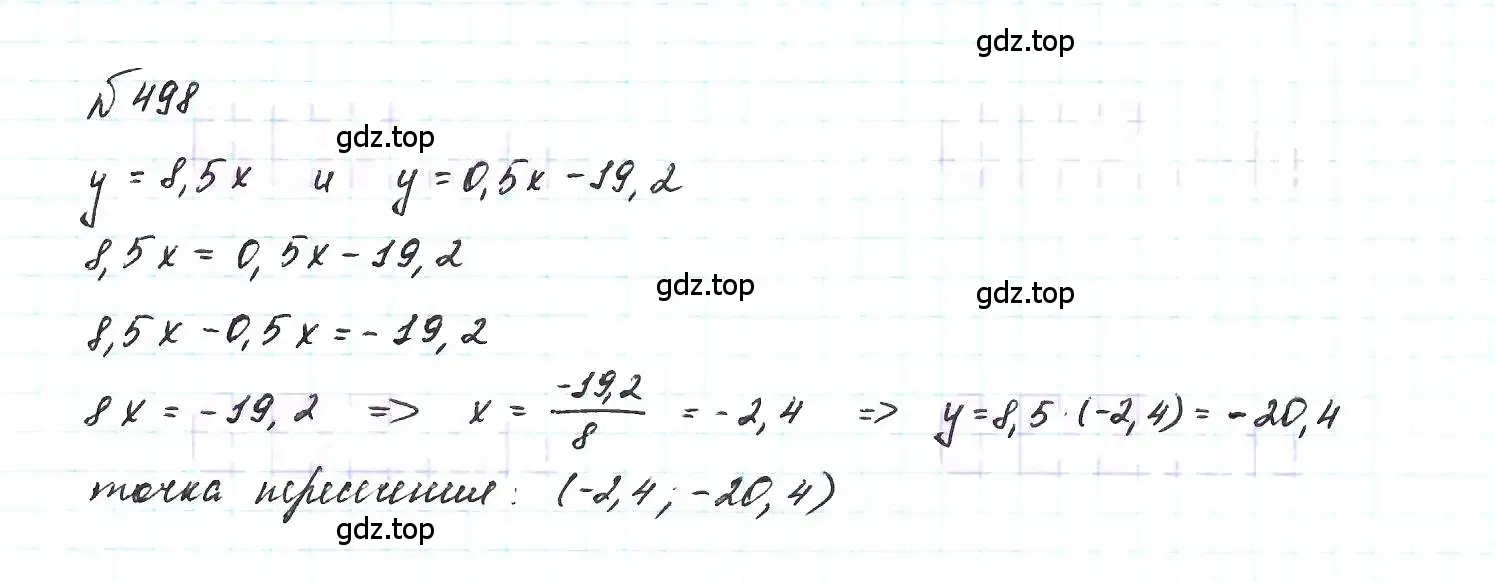 gdz.top
№ 498
gdz.top
y = 8,5x и y = 0,5x - 19,2
8,5x = 0,5x - 19,2
gdz.top gdz.top
8,5x - 0,5x = - 19,2
8x = - 19,2 => x = \frac{-19,2}{8} = - 2,4 => y = 8,5 · (-2,4) = - 20,4
точка пересечения: (-2,4; -20,4)
gdz.top